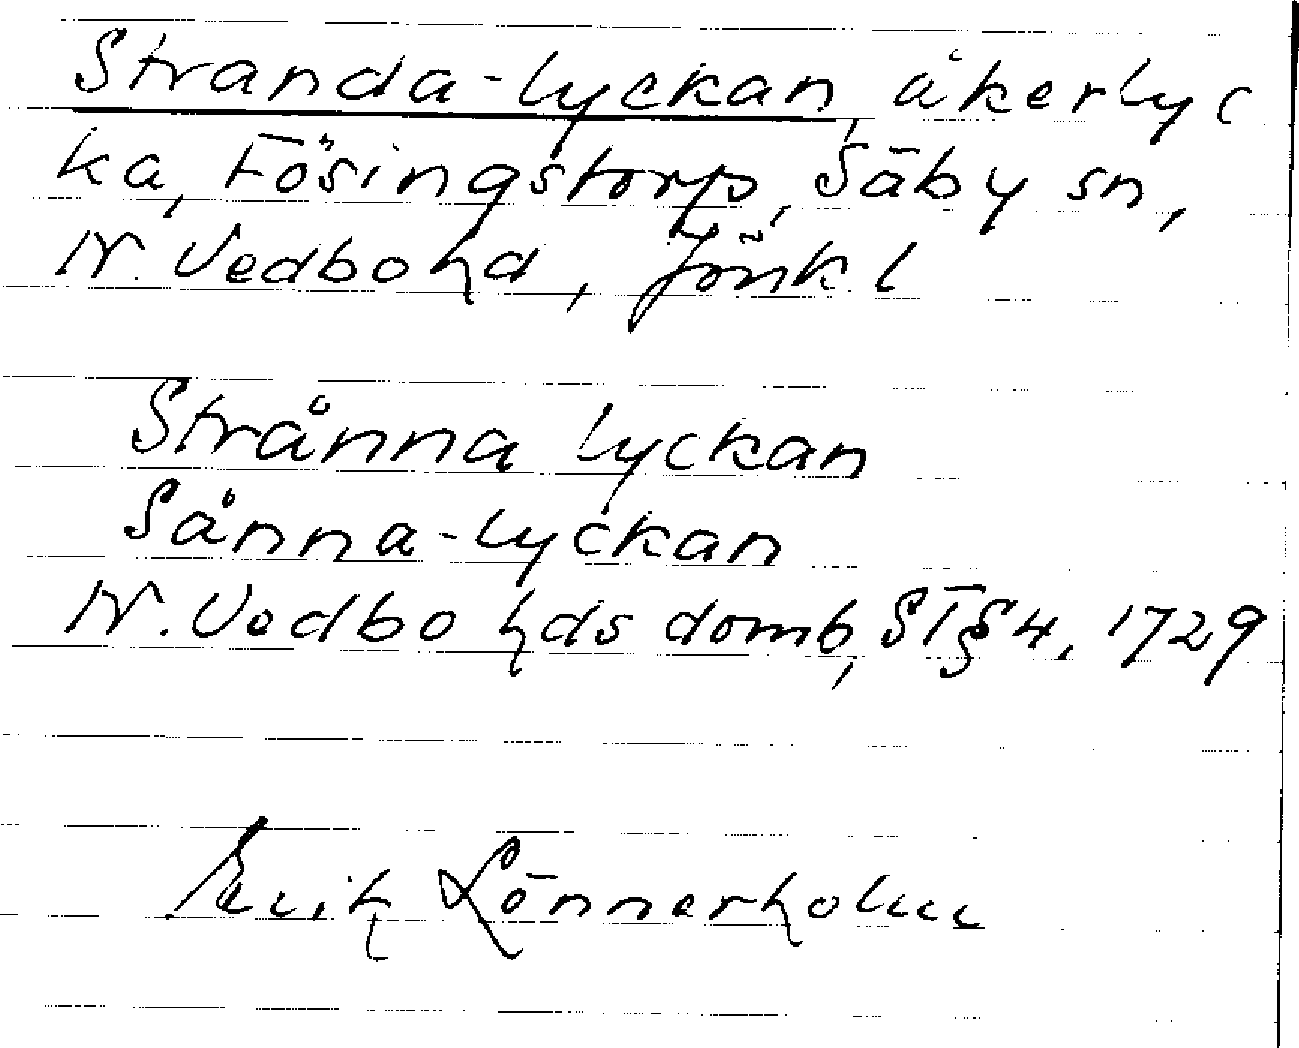 Stranda-lyckan, åkerlyc
ka, Fösingstorp, Säby sn,
N. Vedbo hd, Jönk l
Strånna lyckan
Sånna-lyckan
N. Vedbo hds domb, ST§ 4, 1729
Erik Lönnerholm